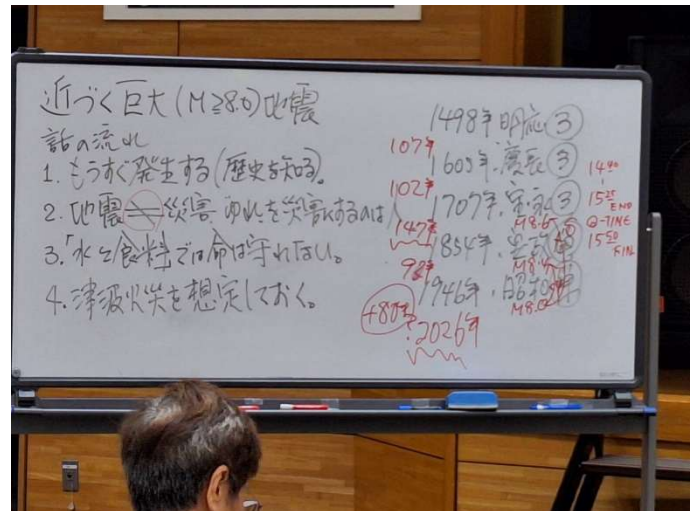 近づく巨大(M≧8.0)地震
話の流れ
1. もうすぐ発生する(歴史を知る)。
2. 地震≠災害 ゆれを災害にするのは人
3.「水と食料」では命は守れない。
4. 津波火災を想定しておく。
1498年 明応 ③
107年
1605年 慶長 ③
102年
1707年 宝永 ③
M8.6
147年
1854年 安政
M8.4
92年
1946年 昭和
M8.0
+80年
2026年
14:40
15:25
END
Q-TIME
15:50
FIN